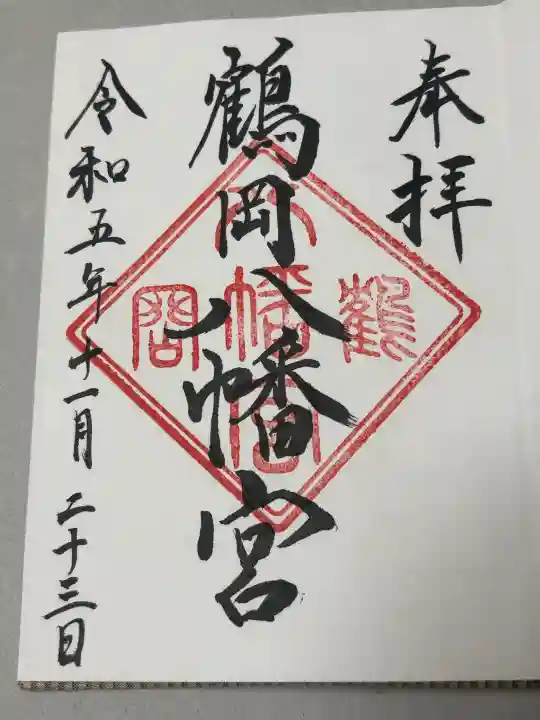 奉拝
鶴岡八幡宮
令和五年十一月二十三日
鶴
八幡宮
岡